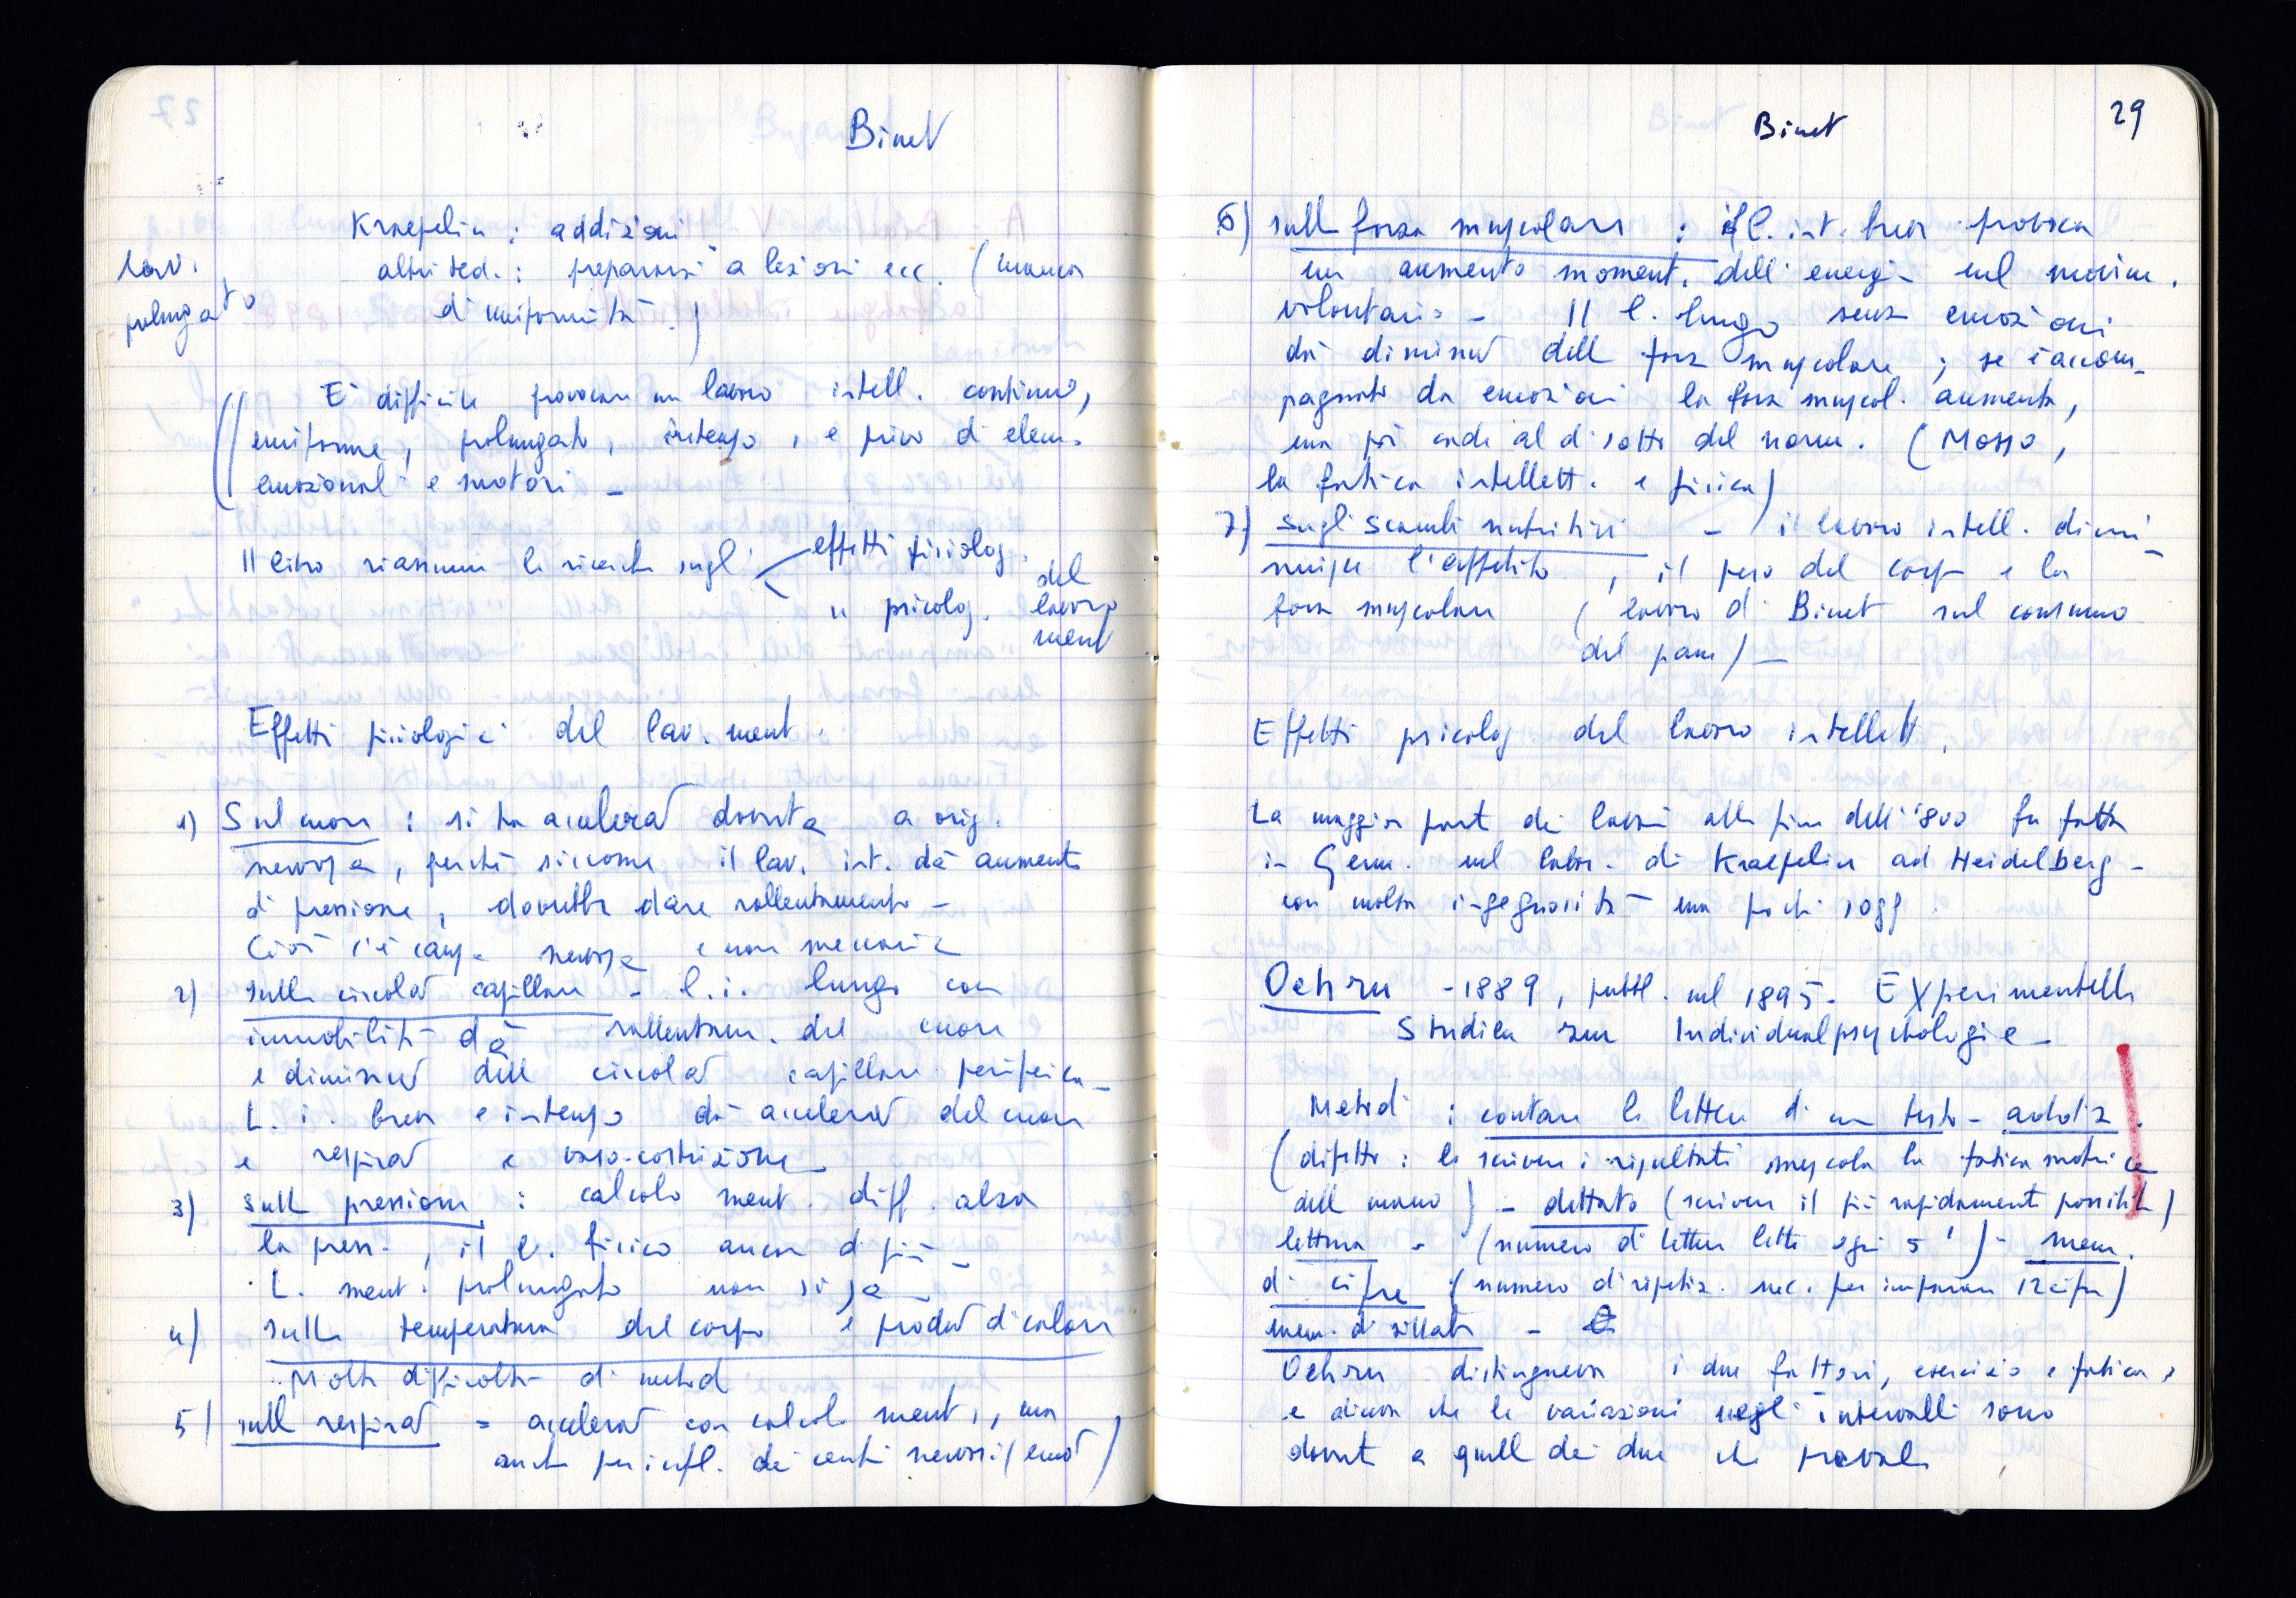 Binet
Kraepelin : addizioni
lav. prolungato
altri ted. : prepararsi a lezioni ecc. (manca
di uniformità.)
E' difficile provocare un lavoro intell. continuo,
uniforme, prolungato, intenso, e privo di elem.
emozionali e motori –
Il libro riassume le ricerche sugli effetti fisiolog.
" psicolog. del lavoro ment
Effetti fisiologici del lav. ment.
1) Sul cuore : si ha accelerat dovuta a orig.
nervosa, perché siccome il lav. int. dà aumento
di pressione, dovrebbe dare rallentamento –
Ciò è causa nervosa e non meccanica
2) sulla circolat capillare – l. i. lungo con
immobilità dà rallentam. del cuore
e diminut della circolat capillare periferica –
L. i. breve e intenso dà accelerat del cuore
e respirat e vaso-costrizione
3) sulla pressione : calcolo ment. diff. alza
la press., il l. fisico ancor di più –
L. ment. prolungato non si sa –
4) sulla temperatura del corpo e produt di calore
Molte difficoltà di metod
5) sulla respirat = accelerat con calcolo ment., ma
anche per infl. dei centri nervosi (emot)
Binet
29
6) sulla forza muscolare : il l. int. breve provoca
un aumento moment. dell' energia nel movim.
volontario – Il l. lungo senza emozioni
dà diminut della forza muscolare ; se è accom-
pagnato da emozioni la forza muscol. aumenta,
ma poi cade al di sotto del norm. (Mosso,
la fatica intellett. e fisica)
7) sugli scambi nutritivi – il lavoro intell. dimi-
nuisce l'appetito, il peso del corpo e la
forza muscolare (lavoro di Binet sul consumo
del pane) –
Effetti psicolog. del lavoro intellett.
La maggior parte dei lavori alla fine dell' '800 fu fatta
in Germ. nel labor. di Kraepelin ad Heidelberg –
con molta ingegnosità ma pochi sogg.
Oehrn – 1889, pubbl. nel 1895. Experimentelle
Studien zur Individualpsychologie –
Metodi : contare le lettere di un testo – addiz.
(difetto : lo scrivere i risultati mescola la fatica motrice
della mano) – dettato (scrivere il più rapidamente possibile)
lettura – (numero di lettere lette ogni 5') – mem.
di cifre (numero di ripetiz. nec. per imparare 12 cifre)
mem. di sillabe –
Oehrn distingueva i due fattori, esercizio e fatica,
e diceva che le variazioni negli intervalli sono
dovute a quella dei due che prevale